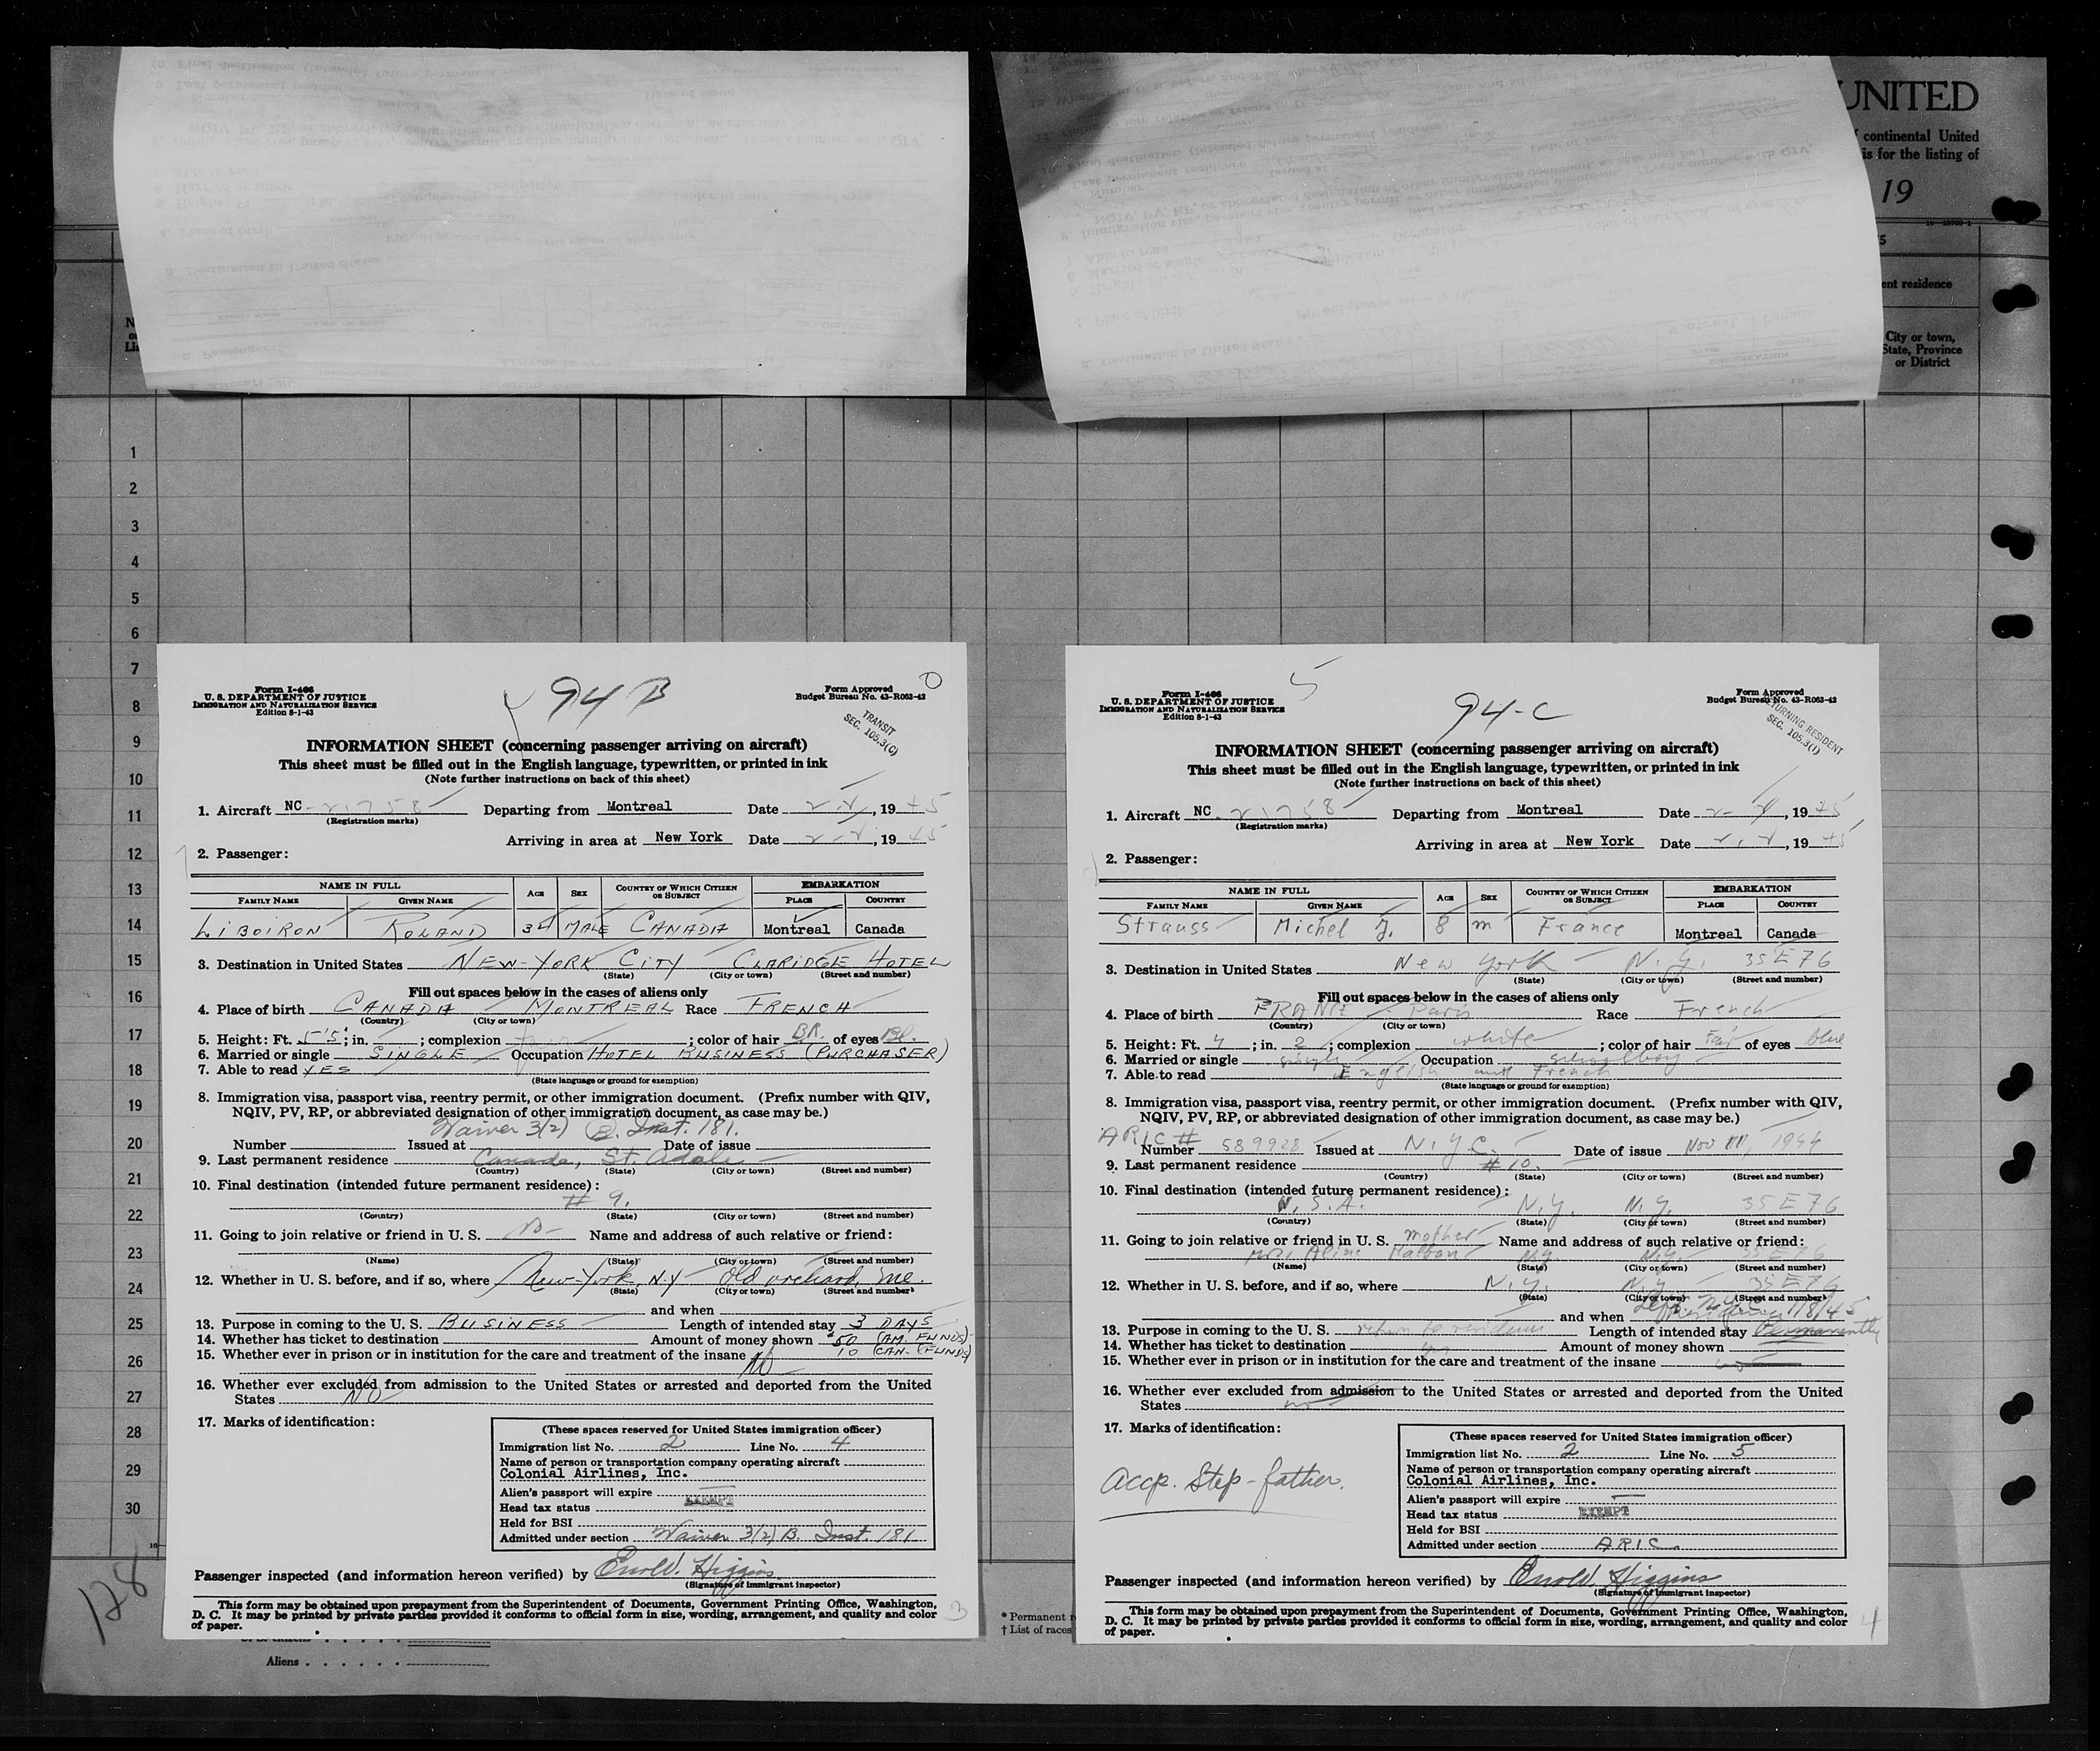 UNITED
continental United
is for the listing of
19
ent residence
City or town,
State, Province
or District
1
2
3
4
5
6
7
8
9
10
11
12
13
14
15
16
17
18
19
20
21
22
23
24
25
26
27
28
29
30
128
Aliens
* Permanent
† List of races
Form I-466
U. S. DEPARTMENT OF JUSTICE
IMMIGRATION AND NATURALIZATION SERVICE
Edition 8-1-43
94 B
Form Approved
Budget Bureau No. 43-R063-42
TRANSIT
SEC. 105.3(C)
INFORMATION SHEET (concerning passenger arriving on aircraft)
This sheet must be filled out in the English language, typewritten, or printed in ink
(Note further instructions on back of this sheet)
1. Aircraft NC-21758 Departing from Montreal Date 2-2, 1945
(Registration marks)
Arriving in area at New York Date 2-2, 1945
2. Passenger:
NAME IN FULL AGE SEX COUNTRY OF WHICH CITIZEN OR SUBJECT EMBARKATION
FAMILY NAME GIVEN NAME PLACE COUNTRY
LIBOIRON ROLAND 34 MALE CANADA Montreal Canada
3. Destination in United States NEW-YORK CITY CLARIDGE HOTEL
(State) (City or town) (Street and number)
Fill out spaces below in the cases of aliens only
4. Place of birth CANADA MONTREAL Race FRENCH
(Country) (City or town)
5. Height: Ft. 5'5"; in. ; complexion fair; color of hair BR. of eyes Bl.
6. Married or single SINGLE Occupation HOTEL BUSINESS (PURCHASER)
7. Able to read YES
(State language or ground for exemption)
8. Immigration visa, passport visa, reentry permit, or other immigration document. (Prefix number with QIV,
NQIV, PV, RP, or abbreviated designation of other immigration document, as case may be.)
Waiver 3(2) B. Inst. 181.
Number Issued at Date of issue
9. Last permanent residence Canada, St. Adele
(Country) (State) (City or town) (Street and number)
10. Final destination (intended future permanent residence):
# 9.
(Country) (State) (City or town) (Street and number)
11. Going to join relative or friend in U. S. No Name and address of such relative or friend:
(Name) (State) (City or town) (Street and number)
12. Whether in U. S. before, and if so, where New-York, N.Y Old orchard, Me.
(State) (City or town) (Street and number)
and when
13. Purpose in coming to the U. S. BUSINESS Length of intended stay 3 DAYS
14. Whether has ticket to destination Amount of money shown $50 (AM. FUNDS)
10 (CAN. FUNDS)
15. Whether ever in prison or in institution for the care and treatment of the insane NO
16. Whether ever excluded from admission to the United States or arrested and deported from the United
States NO
17. Marks of identification:
(These spaces reserved for United States immigration officer)
Immigration list No. 2 Line No. 4
Name of person or transportation company operating aircraft
Colonial Airlines, Inc.
Alien's passport will expire
Head tax status EXEMPT
Held for BSI
Admitted under section Waiver 3(2) B. Inst. 181
Passenger inspected (and information hereon verified) by Enold. Higgins
(Signature of immigrant inspector)
This form may be obtained upon prepayment from the Superintendent of Documents, Government Printing Office, Washington,
D. C. It may be printed by private parties provided it conforms to official form in size, wording, arrangement, and quality and color
of paper.
3
Form I-466
U. S. DEPARTMENT OF JUSTICE
IMMIGRATION AND NATURALIZATION SERVICE
Edition 8-1-43
5
94-C
Form Approved
Budget Bureau No. 43-R063-42
RETURNING RESIDENT
SEC. 105.3(1)
INFORMATION SHEET (concerning passenger arriving on aircraft)
This sheet must be filled out in the English language, typewritten, or printed in ink
(Note further instructions on back of this sheet)
1. Aircraft NC-21758 Departing from Montreal Date 2-2, 1945
(Registration marks)
Arriving in area at New York Date 2-2, 1945
2. Passenger:
NAME IN FULL AGE SEX COUNTRY OF WHICH CITIZEN OR SUBJECT EMBARKATION
FAMILY NAME GIVEN NAME PLACE COUNTRY
Strauss Michel J. 8 m France Montreal Canada
3. Destination in United States New York N.Y. 35 E 76
(State) (City or town) (Street and number)
Fill out spaces below in the cases of aliens only
4. Place of birth FRANCE Paris Race French
(Country) (City or town)
5. Height: Ft. 4; in. 2; complexion white; color of hair Fair of eyes blue
6. Married or single single Occupation schoolboy
7. Able to read English and French
(State language or ground for exemption)
8. Immigration visa, passport visa, reentry permit, or other immigration document. (Prefix number with QIV,
NQIV, PV, RP, or abbreviated designation of other immigration document, as case may be.)
ARIC #
Number 589928 Issued at N.Y.C. Date of issue Nov 1944
9. Last permanent residence # 10.
(Country) (State) (City or town) (Street and number)
10. Final destination (intended future permanent residence):
U.S.A. N.Y. N.Y. 35 E 76
(Country) (State) (City or town) (Street and number)
11. Going to join relative or friend in U. S. mother Name and address of such relative or friend:
Mrs. Aline N.Y. N.Y. 35 E 76
(Name) (State) (City or town) (Street and number)
12. Whether in U. S. before, and if so, where N.Y. N.Y. 35 E 76
(State) (City or town) (Street and number)
and when 1/8/45
13. Purpose in coming to the U. S. return to residence Length of intended stay Permanently
14. Whether has ticket to destination yes Amount of money shown
15. Whether ever in prison or in institution for the care and treatment of the insane no
16. Whether ever excluded from admission to the United States or arrested and deported from the United
States no
17. Marks of identification:
Accp. Step-father.
(These spaces reserved for United States immigration officer)
Immigration list No. 2 Line No. 5
Name of person or transportation company operating aircraft
Colonial Airlines, Inc.
Alien's passport will expire
Head tax status EXEMPT
Held for BSI
Admitted under section ARIC
Passenger inspected (and information hereon verified) by Enold. Higgins
(Signature of immigrant inspector)
This form may be obtained upon prepayment from the Superintendent of Documents, Government Printing Office, Washington,
D. C. It may be printed by private parties provided it conforms to official form in size, wording, arrangement, and quality and color
of paper.
4